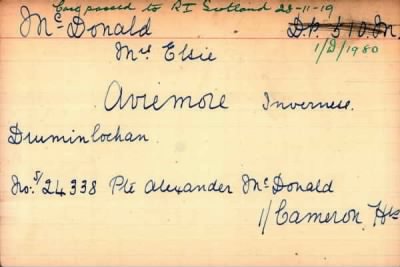 Case passed to R I Scotland 28-11-19
McDonald D.P. 510.M.
1/D/1980
Mrs Elsie
Aviemore Inverness.
Druminlochan.
No: S/24338 Pte Alexander McDonald
1/Cameron Hrs